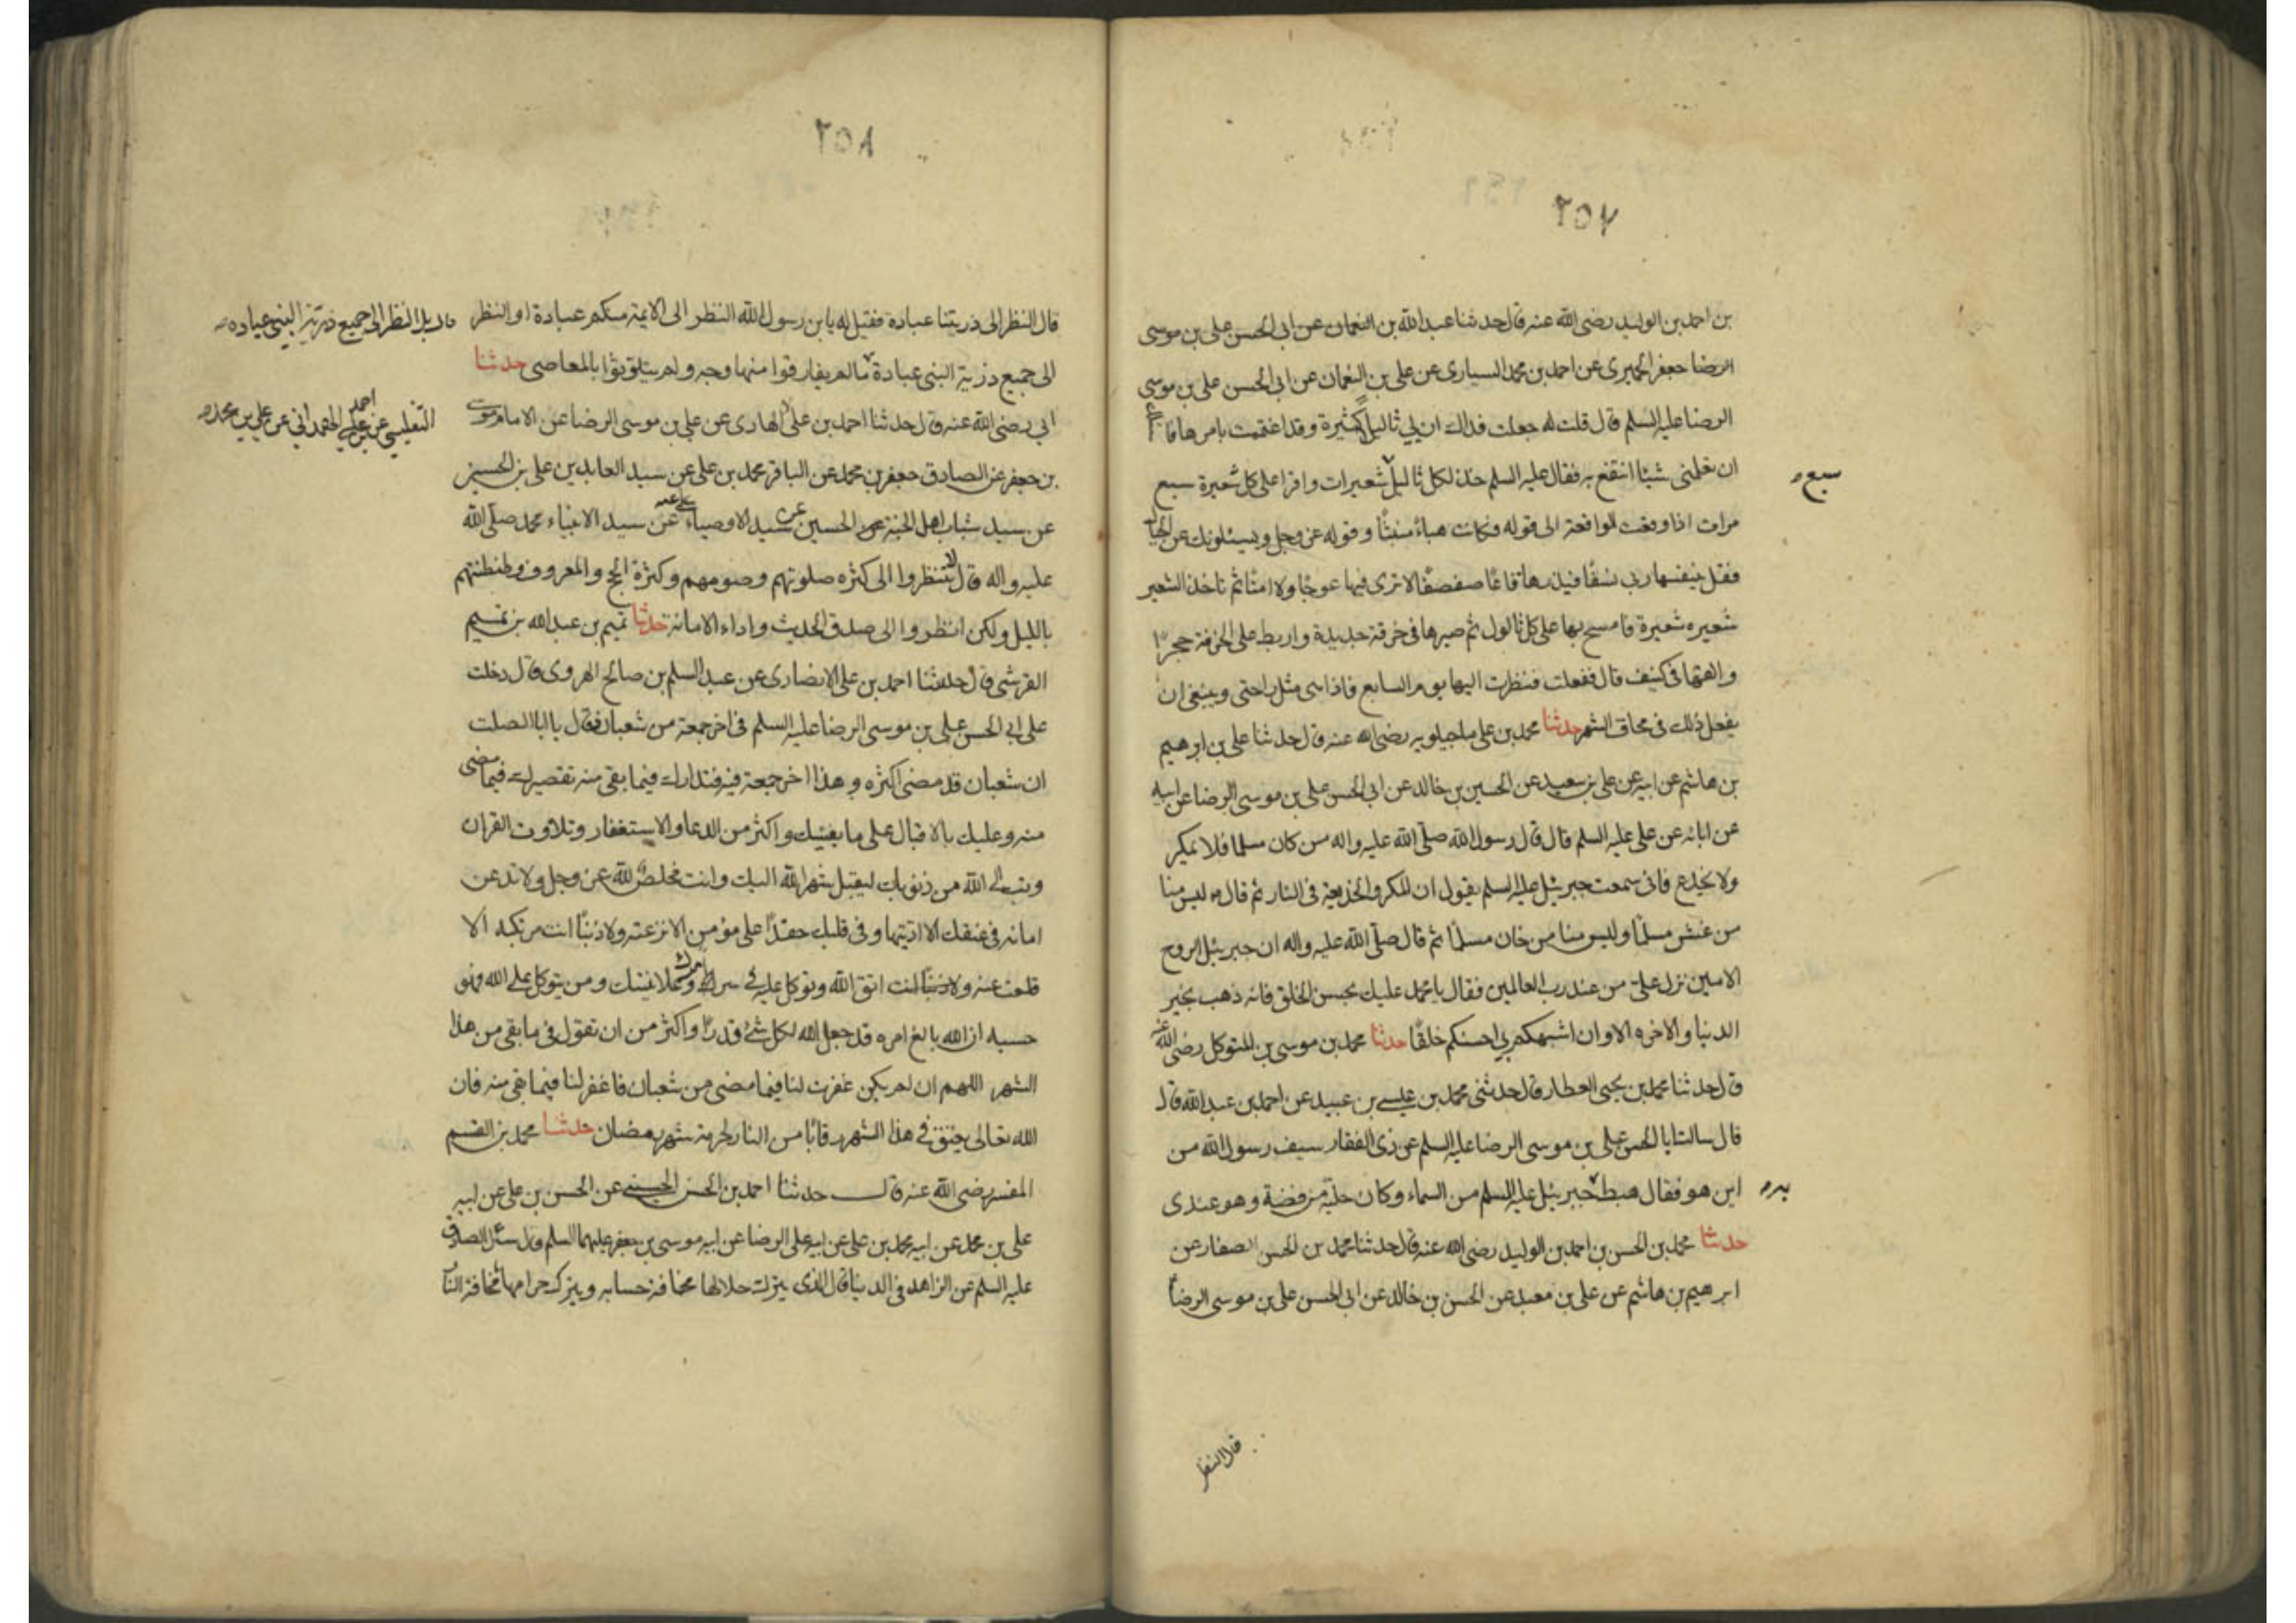 ٢٥٧
بن احمد بن الوليد رضى الله عنه قال حدثنا عبد الله بن النعمان عن ابى الحسن على بن موسى
الرضا جعفر الحميرى عن احمد بن محمد السيارى عن على بن النعمان عن ابى الحسن على بن موسى
الرضا عليه السلم قال قلت له جعلت فداك ان لى ثاليل كثيرة وقد اغتممت بامرها
ان تعلمنى شيئا انتفع به فقال عليه السلم خذ لكل ثاليل شعيرات واقرا على كل شعيرة سبع
سبع
مرات اذا وقعت الواقعة الى قوله فكانت هباء منبثا وقوله عز وجل ويسئلونك عن الجبال
فقل ينسفها ربى نسفا فيذرها قاعا صفصفا لا ترى فيها عوجا ولا امتا ثم تاخذ الشعير
شعيره شعيرة فامسح بها على كل ثالول ثم صيرها فى خرقة جديدة واربط على الخرقة حجرا
والقها فى كنيف قال ففعلت فنظرت اليها يوم السابع فاذا هى مثل راحتى وينبغى ان
يفعل ذلك فى محاق الشهر حدثنا محمد بن على ماجيلويه رضى الله عنه قال حدثنا على بن ابرهيم
بن هاشم عن ابيه عن على بن سعيد عن الحسين بن خالد عن ابى الحسن على بن موسى الرضا عن ابيه
عن ابائه عن على عليه السلم قال قال رسول الله صلى الله عليه واله من كان مسلما فلا يمكر
ولا يخدع فانى سمعت جبرئيل عليه السلم يقول ان المكر والخديعة فى النار ثم قال ليس منا
من غش مسلما وليس منا من خان مسلما ثم قال صلى الله عليه واله ان جبرئيل الروح
الامين نزل على من عند رب العالمين فقال يا محمد عليك بحسن الخلق فانه ذهب بخير
الدنيا والاخره الا وان اشبهكم بى احسنكم خلقا حدثنا محمد بن موسى بن المتوكل رضى الله عنه
قال حدثنا محمد بن يحيى العطار قال حدثنى محمد بن عيسى بن عبيد عن احمد بن عبد الله قال
قال سالت ابا الحسن على بن موسى الرضا عليه السلم عن ذى الفقار سيف رسول الله من
اين هو فقال هبط جبرئيل عليه السلم من السماء وكان حليه من فضة وهو عندى
به
حدثنا محمد بن الحسن بن احمد بن الوليد رضى الله عنه قال حدثنا محمد بن الحسن الصفار عن
ابرهيم بن هاشم عن على بن معبد عن الحسن بن خالد عن ابى الحسن على بن موسى الرضا
قال النظر
٢٥٨
قال النظر الى ذريتنا عبادة فقيل له يابن رسول الله النظر الى الايمة منكم عبادة او النظر
قال بل النظر الى جميع ذرية النبى عباده
الى جميع ذرية النبى عبادة ما لم يفارقوا منهاوجه ولم يتلوثوا بالمعاصى حدثنا
ابى رضى الله عنه قال حدثنا احمد بن على الهادى عن على بن موسى الرضا عن الامام موسى
التفليسى عن احمد بن على الهمدانى عن على بن محمد
بن جعفر عن الصادق جعفر بن محمد عن الباقر محمد بن على عن سيد العابدين على بن الحسين
عن سيد شباب اهل الجنة الحسين عن سيد الاوصياء على عن سيد الانبياء محمد صلى الله
عليه واله قال لا تنظروا الى كثره صلوتهم وصومهم وكثرة الحج والمعروف وطنطنتهم
بالليل ولكن انظروا الى صدق الحديث واداء الامانة حدثنا تميم بن عبد الله بن تميم
القرشى قال حدثنا احمد بن على الانصارى عن عبد السلم بن صالح الهروى قال دخلت
على ابى الحسن على بن موسى الرضا عليه السلم فى اخر جمعة من شعبان فقال يا ابا الصلت
ان شعبان قد مضى اكثره وهذا اخر جمعة فيه فتدارك فيما بقى منه تقصيرك فيما مضى
منه وعليك بالاقبال على ما يعنيك واكثر من الدعا والاستغفار وتلاوت القران
وتب الى الله من ذنوبك ليقبل شهر الله اليك وانت مخلص لله عز وجل ولا تدعن
امانه فى عنقك الا اديتها وفى قلبك حقدا على مؤمن الا نزعته ولا ذنبا انت مرتكبه الا
قلعت عنه ولا ذنبا انت اتق الله وتوكل عليه فى سر امرك وعلانيتك ومن يتوكل على الله فهو
حسبه ان الله بالغ امره قد جعل الله لكل شئ قدرا واكثر من ان تقول فى ما بقى من هذا
الشهر اللهم ان لم يكن غفرت لنا فيما مضى من شعبان فاغفر لنا فيما بقى منه فان
الله تعالى يعتق فى هذا الشهر رقابا من النار لحرمة شهر رمضان حدثنا محمد بن القسم
المفسر رضى الله عنه قال حدثنا احمد بن الحسن الحسينى عن الحسن بن على عن ابيه
على بن محمد عن ابيه محمد بن على عن ابيه على الرضا عن ابيه موسى بن جعفر عليهما السلم قال سئل الصادق
عليه السلم عن الزاهد فى الدنيا قال الذى يترك حلالها مخافة حسابه ويترك حرامها مخافة النار